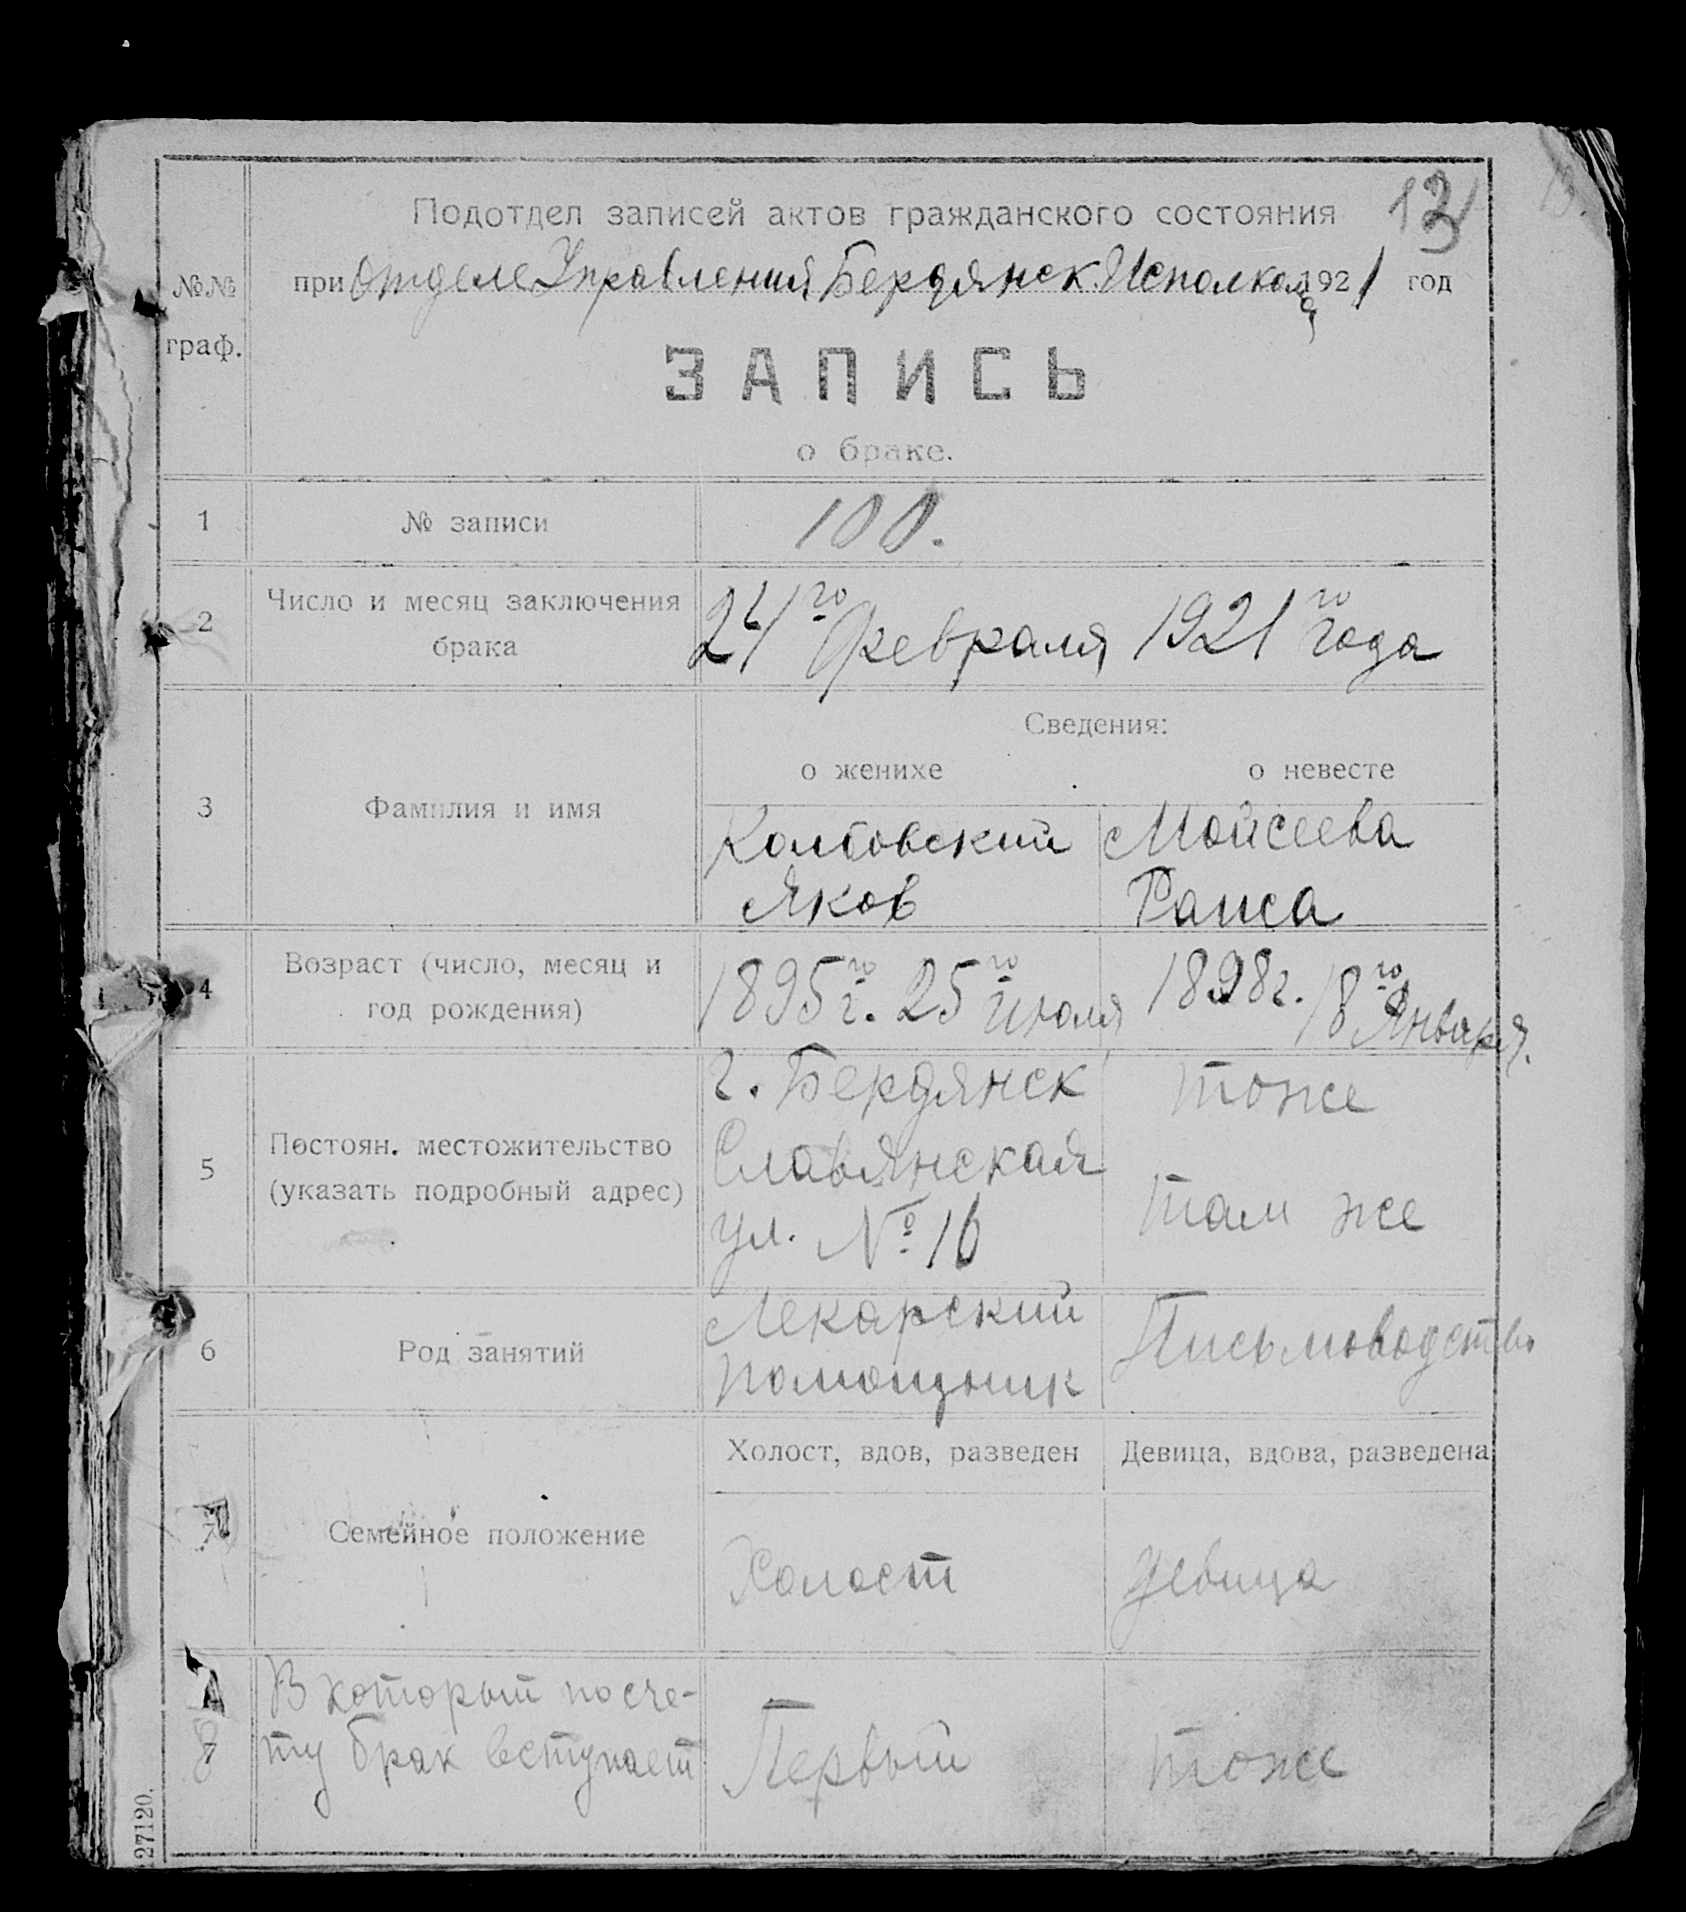 13
13.
Подотдел записей актов гражданского состояния
при Отделе Управления Бердянск. Исполкома 1921 год
№№ граф.
ЗАПИСЬ
о браке.
1 № записи 100.
2 Число и месяц заключения брака 24го Февраля 1921го года
Сведения:
о женихе о невесте
3 Фамилия и имя
Колтовский Моисеева
Яков Раиса
4 Возраст (число, месяц и год рождения)
1895го г. 25го Июля 1898 г. 18го Января.
5 Постоян. местожительство (указать подробный адрес)
г. Бердянск тоже
Славянская
ул. № 16 там же
6 Род занятий
Лекарский Письмоводство
помощник
Холост, вдов, разведен Девица, вдова, разведена
7 Семейное положение
Холост девица
8 В который по сче-
ту брак вступает Первый тоже
27120.